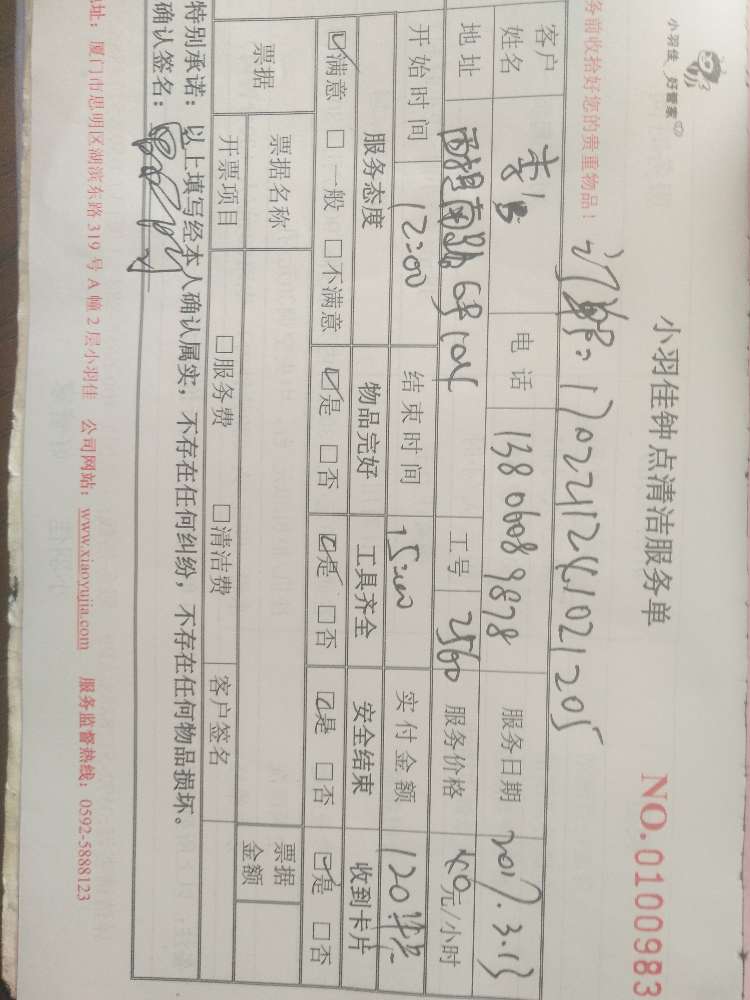 小羽佳 好管家
小羽佳钟点清洁服务单
NO.0100983
务前收拾好您的贵重物品！
1702211241021205
客户姓名 电话 13806089878 服务日期 2017.3.13
地址 6号104 工号 2560 服务价格 40元/小时
开始时间 12:00 结束时间 15:00 实付金额 120
服务态度 物品完好 工具齐全 安全结束 收到卡片
☑满意 □一般 □不满意 ☑是 □否 ☑是 □否 ☑是 □否 ☑是 □否
票据 票据名称 票据金额
开票项目 □服务费 □清洁费 客户签名
特别承诺：以上填写经本人确认属实，不存在任何纠纷，不存在任何物品损坏。
确认签名：
址：厦门市思明区湖滨东路319号A幢2层小羽佳 公司网站：www.xiaoyujia.com 服务监督热线：0592-5888123